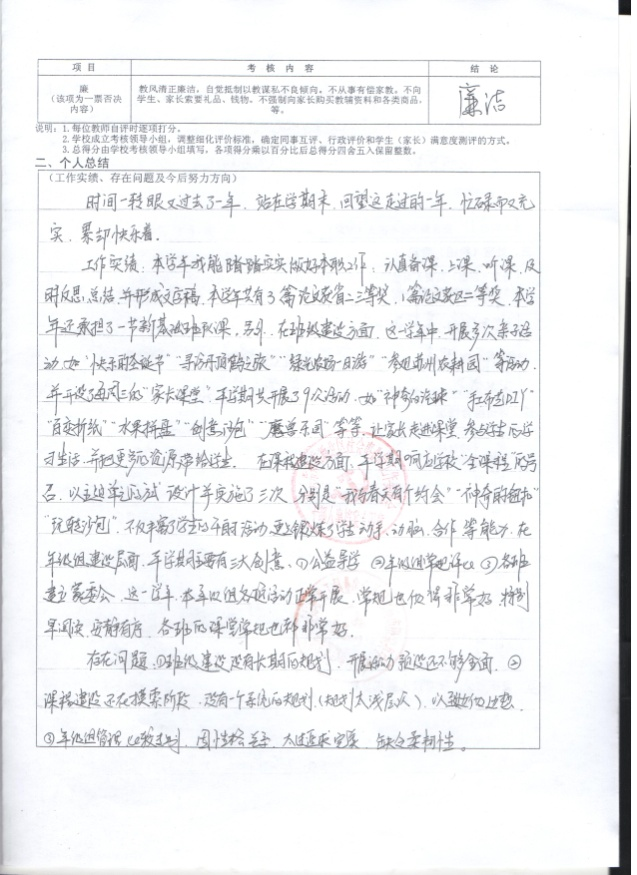 项目 考核内容 结论
廉
(该项为一票否决内容)
教风清正廉洁，自觉抵制以教谋私不良倾向。不从事有偿家教。不向
学生、家长索要礼品、钱物。不强制向家长购买教辅资料和各类商品，
等。
廉洁
说明：1.每位教师自评时逐项打分。
2.学校成立考核领导小组，调整细化评价标准，确定同事互评、行政评价和学生（家长）满意度测评的方式。
3.总得分由学校考核领导小组填写，各项得分乘以百分比后总得分四舍五入保留整数。
二、个人总结
（工作实绩、存在问题及今后努力方向）
时间一转眼又过去了一年，站在学期末，回望这走过的一年，忙碌而又充
实，累却快乐着。
工作实绩：本学年我能踏踏实实做好本职工作，认真备课、上课、听课，及
时反思，总结，并形成文字稿，本学年共有3篇论文获省二三等奖，1篇论文获区二等奖，本学
年还承担了一节新基础班队课，另外，在班级建设方面，这一学年中，开展多次亲子活
动，如"快乐的圣诞节" 一日游" "参观苏州农耕园"等活动，
并开设了 的"家长课堂"，本学期共开展了9次活动，如"神奇的 " "手 DIY"
"百变折纸" "水果拼盘" "创意沙包" 等等，让家长走进课堂，参与学生的学
习生活，并把更多的资源带给学生。在课程建设方面，本学期响应学校"全课程"的号
召，以主题单元的 设计并实施了三次，分别是"我和春天有个约会" "神奇的纽扣"
"玩转沙包"，不仅丰富了学生的 活动，更锻炼了学生动手、动脑、合作等能力，在
年级组建设层面，本学期主要有三大创意，①公益导学 ②年级组常规评比 ③各班
建立家委会，这一学年，本年级组各项活动正常开展，常规也做得非常好，特别
早阅读，安静有序，各班的课堂常规也都非常好。
存在问题：①班级建设没有长期的规划，开展活动预设还不够全面，②
课程建设还在摸索阶段，没有一个系统的规划（规划太浅层次），
③年级组管理 ，因性格关系，太过追求完美，缺乏柔韧性。